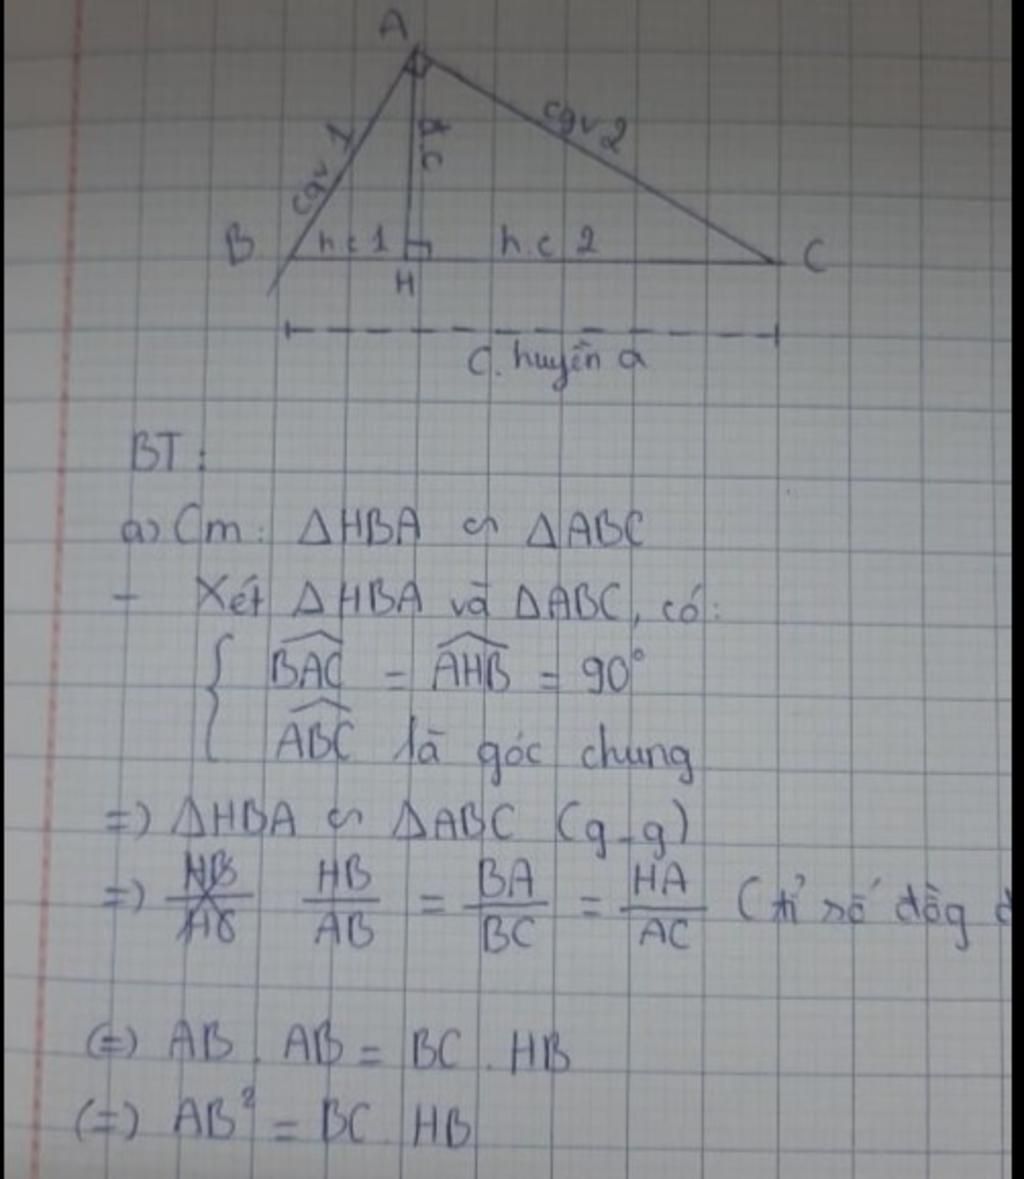 A
cgv 1
đ c
cgv 2
B h c 1 h.c 2 C
H
C. huyền a
BT:
a) Cm: ΔHBA ∽ ΔABC
- Xét ΔHBA và ΔABC, có:
{ \widehat{BAC} = \widehat{AHB} = 90°
\widehat{ABC} là góc chung
=) ΔHBA ∽ ΔABC (g-g)
=) HB/AB = BA/BC = HA/AC (tỉ số đồg
(=) AB . AB = BC . HB
(=) AB² = BC HB